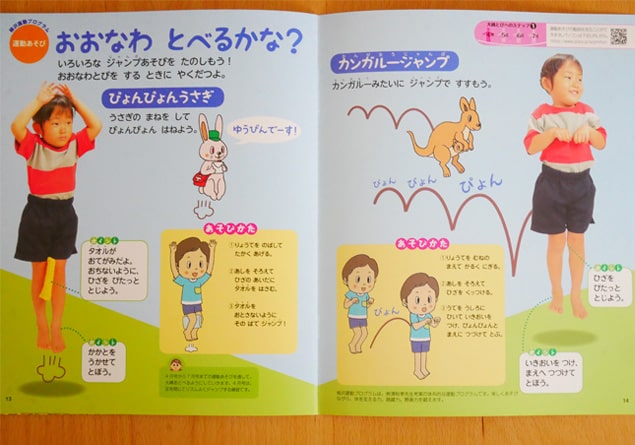 柳沢運動プログラム
運動あそび
おおなわ とべるかな?
いろいろな ジャンプあそびを たのしもう!
おおなわとびを する ときに やくだつよ。
ぴょんぴょんうさぎ
うさぎの まねを して
ぴょんぴょん はねよう。
ゆうびんでーす!
ポイント
タオルが
おてがみだよ。
おちないように、
ひざを ぴたっと
とじよう。
ポイント
かかとを
うかせて
とぼう。
あそびかた
①りょうてを のばして
たかく あげる。
②あしを そろえて
ひざの あいだに
タオルを はさむ。
③タオルを
おとさないように
その ばで ジャンプ!
13
大縄とびへのステップ1
カンガルージャンプ
カンガルーみたいに ジャンプで すすもう。
ぴょん
ぴょん
ぴょん
あそびかた
①りょうてを むねの
まえで かるく にぎる。
②あしを そろえて
ひざを くっつける。
③うでを うしろに
ひいて いきおいを
つけ、ぴょんぴょんと
まえに つづけて とぶ。
ポイント
ひざを
ぴたっと
とじよう。
ポイント
いきおいを つけ、
まえへ つづけて
とぼう。
14